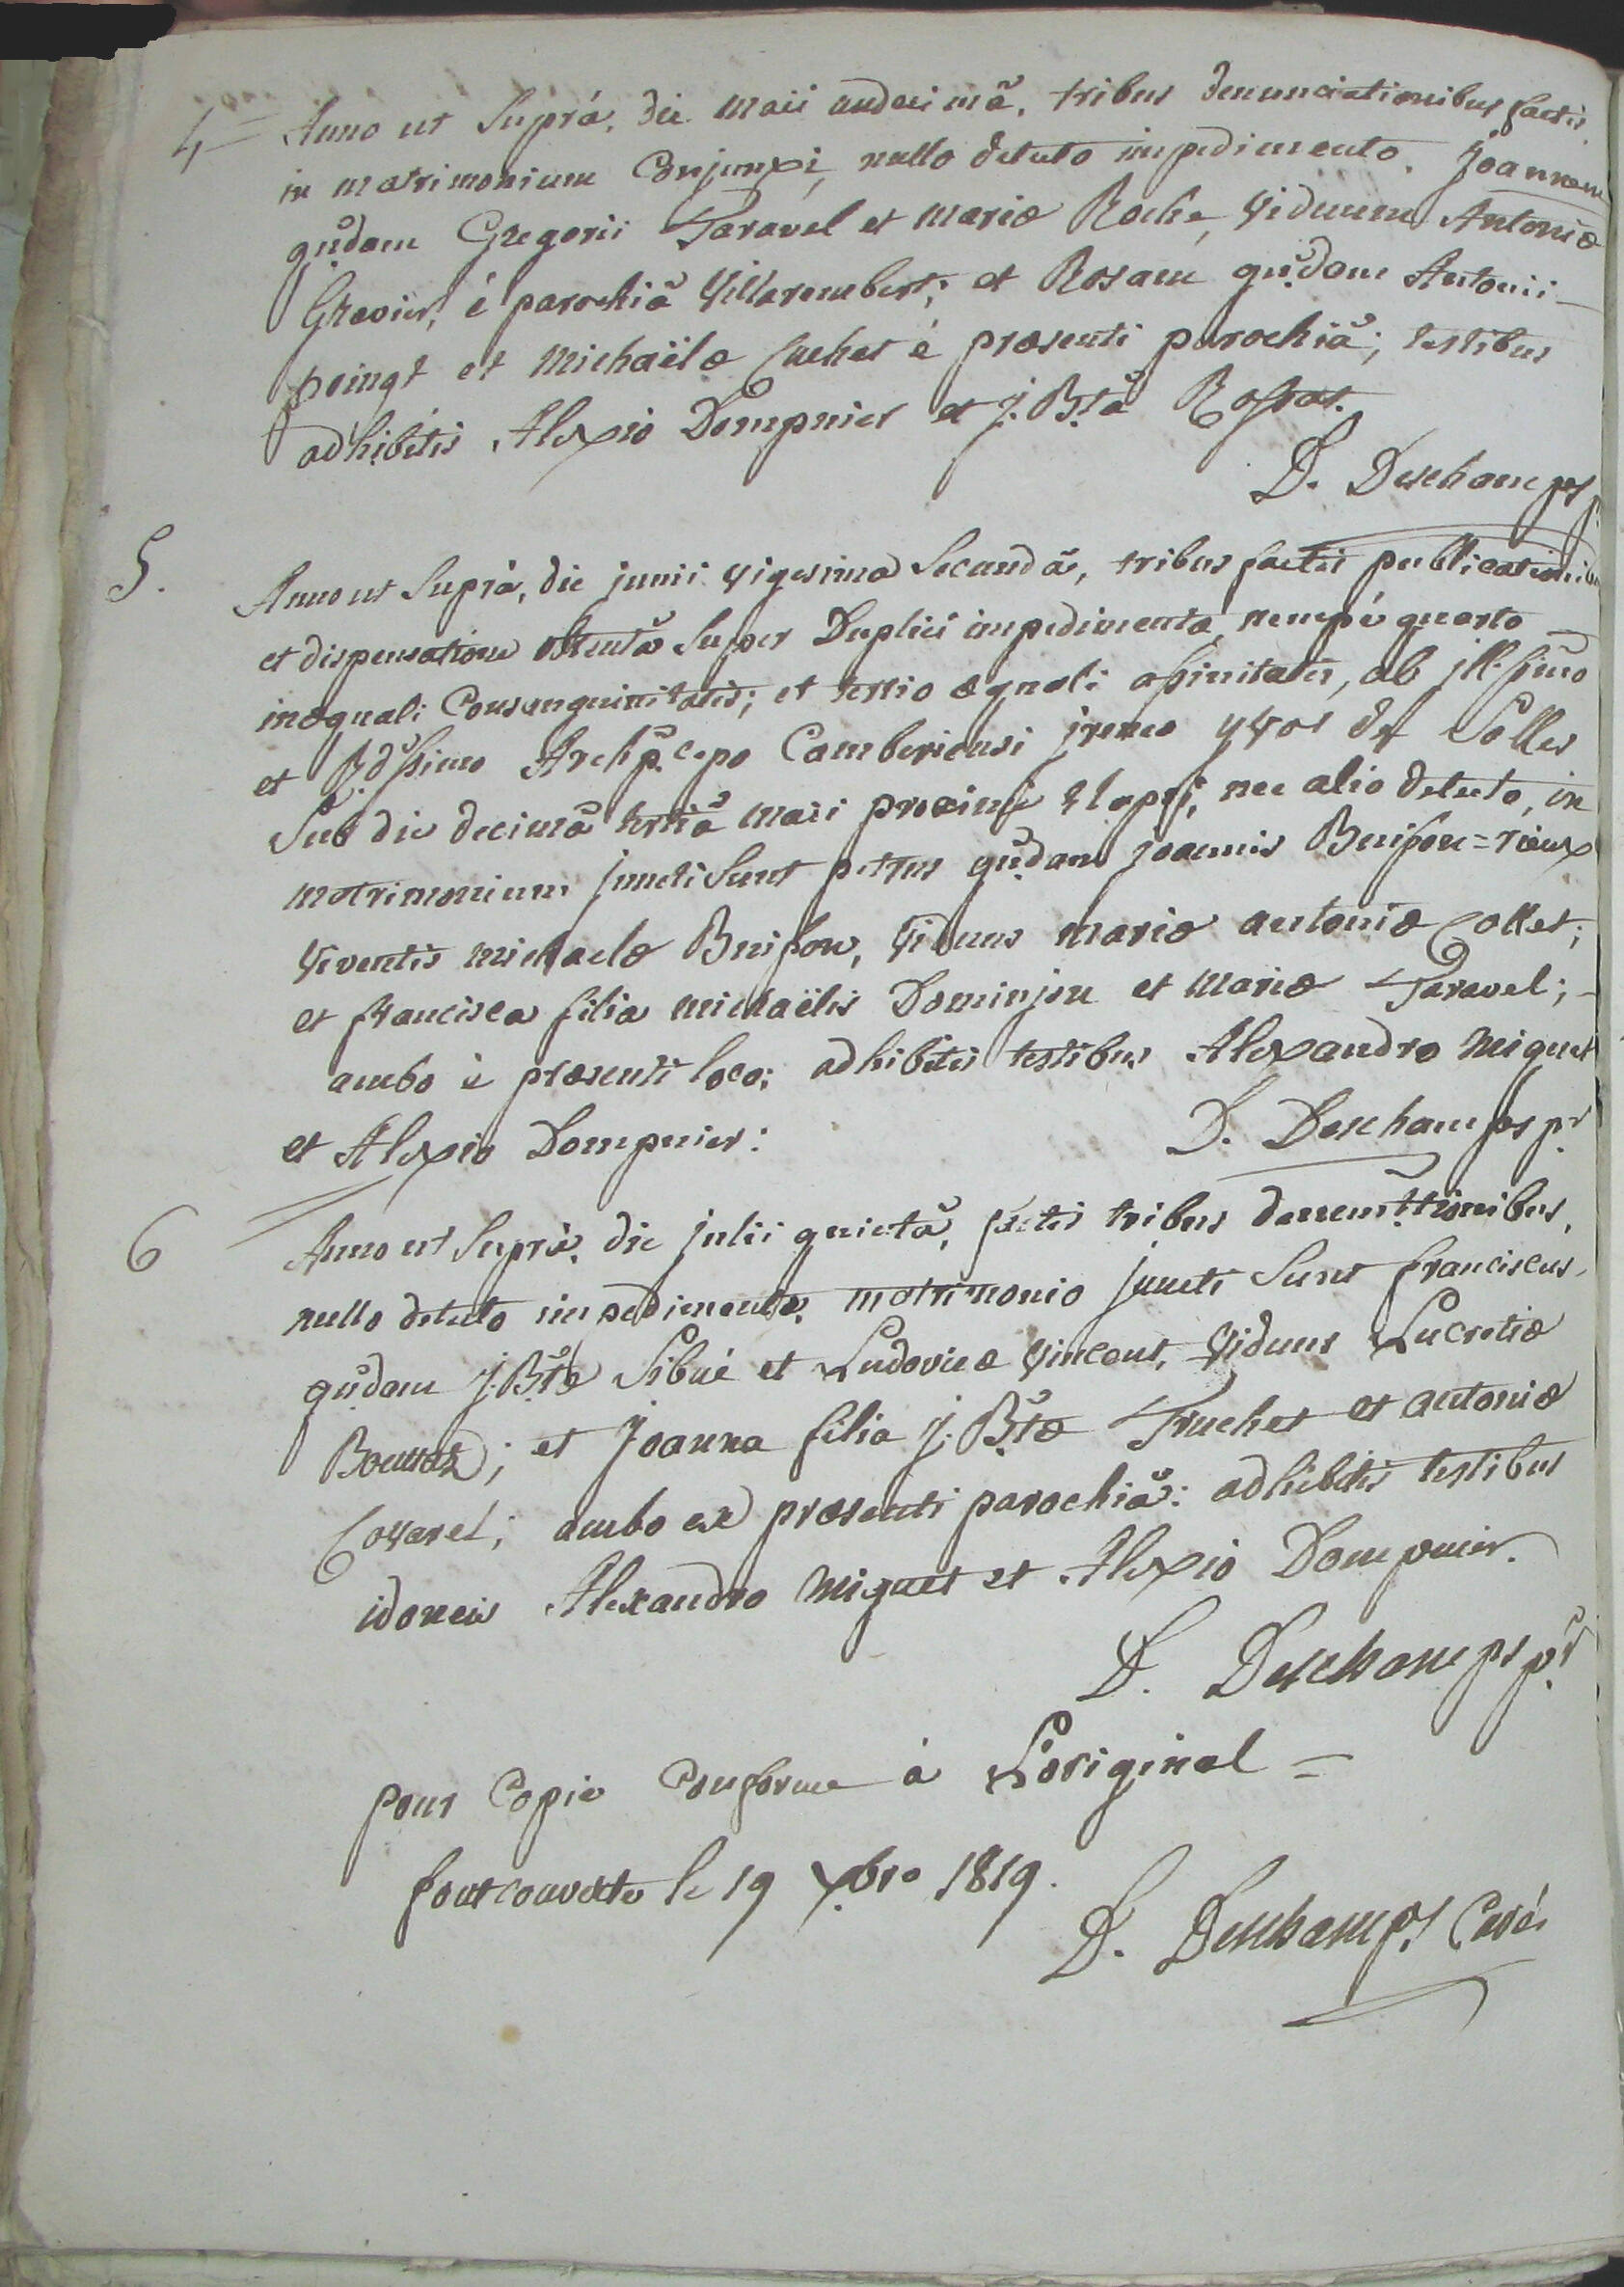 4= Anno ut Suprà, die maii undecimâ, tribus denunciationibus factis,
in matrimonium Conjunxi, nullo detecto impedimento, Joannem
qūdam Gregorii Taravel et mariæ Roche, Viduum Antoniæ
Gravier, è parochiâ Villarembert; et Rosam qūdam Antonii
poingt et Michaëlæ Cuchet è præsenti parochiâ; testibus
adhibitis Alexio Dompnier et J. Btâ Rostat.
D. Deschamps
5. Anno ut Suprà, die junii vigesima Secundâ, tribus factis publicationibus
et dispensatione obtentâ Super Duplici impedimento, nempè quarto
inæquali Consanguinitatis; et tertio æquali affinitatis, ab jll.ssimo
et Rdssimo Archp.cepo Camberiensi jreneo yvos de Solles
Sub die decimâ tertiâ maii proximè Elapsi, nec alio detecto, in
matrimonium juncti Sunt petrus qūdam joannis Buisson=rieux
Viventis michaelæ Buisson, Viduus mariæ antoniæ Collet;
et francisca filia michaëlis Dominjon et mariæ Taravel;
ambo è præsenti loco; adhibitis testibus Alexandro miquet
et Alexio Dompnier:
D. Deschamps pr
6 Anno ut Suprà, die julii quintâ, factis tribus denuntiationibus,
nullo detecto impedimento, matrimonio juncti Sunt franciscus,
qūdam J. Btæ Sibué et Ludovicæ Vincent, Viduus Lucretiæ
; et Joanna filia J. Btæ Truchet et antoniæ
Covarel; ambo ex præsenti parochiâ: adhibitis testibus
idoneis Alexandro miquet et Alexio Dompnier.
D. Deschamps pr
pour Copie Conforme à L'original =
fontcouverte le 19 xbre 1819.
D. Deschamps Curé